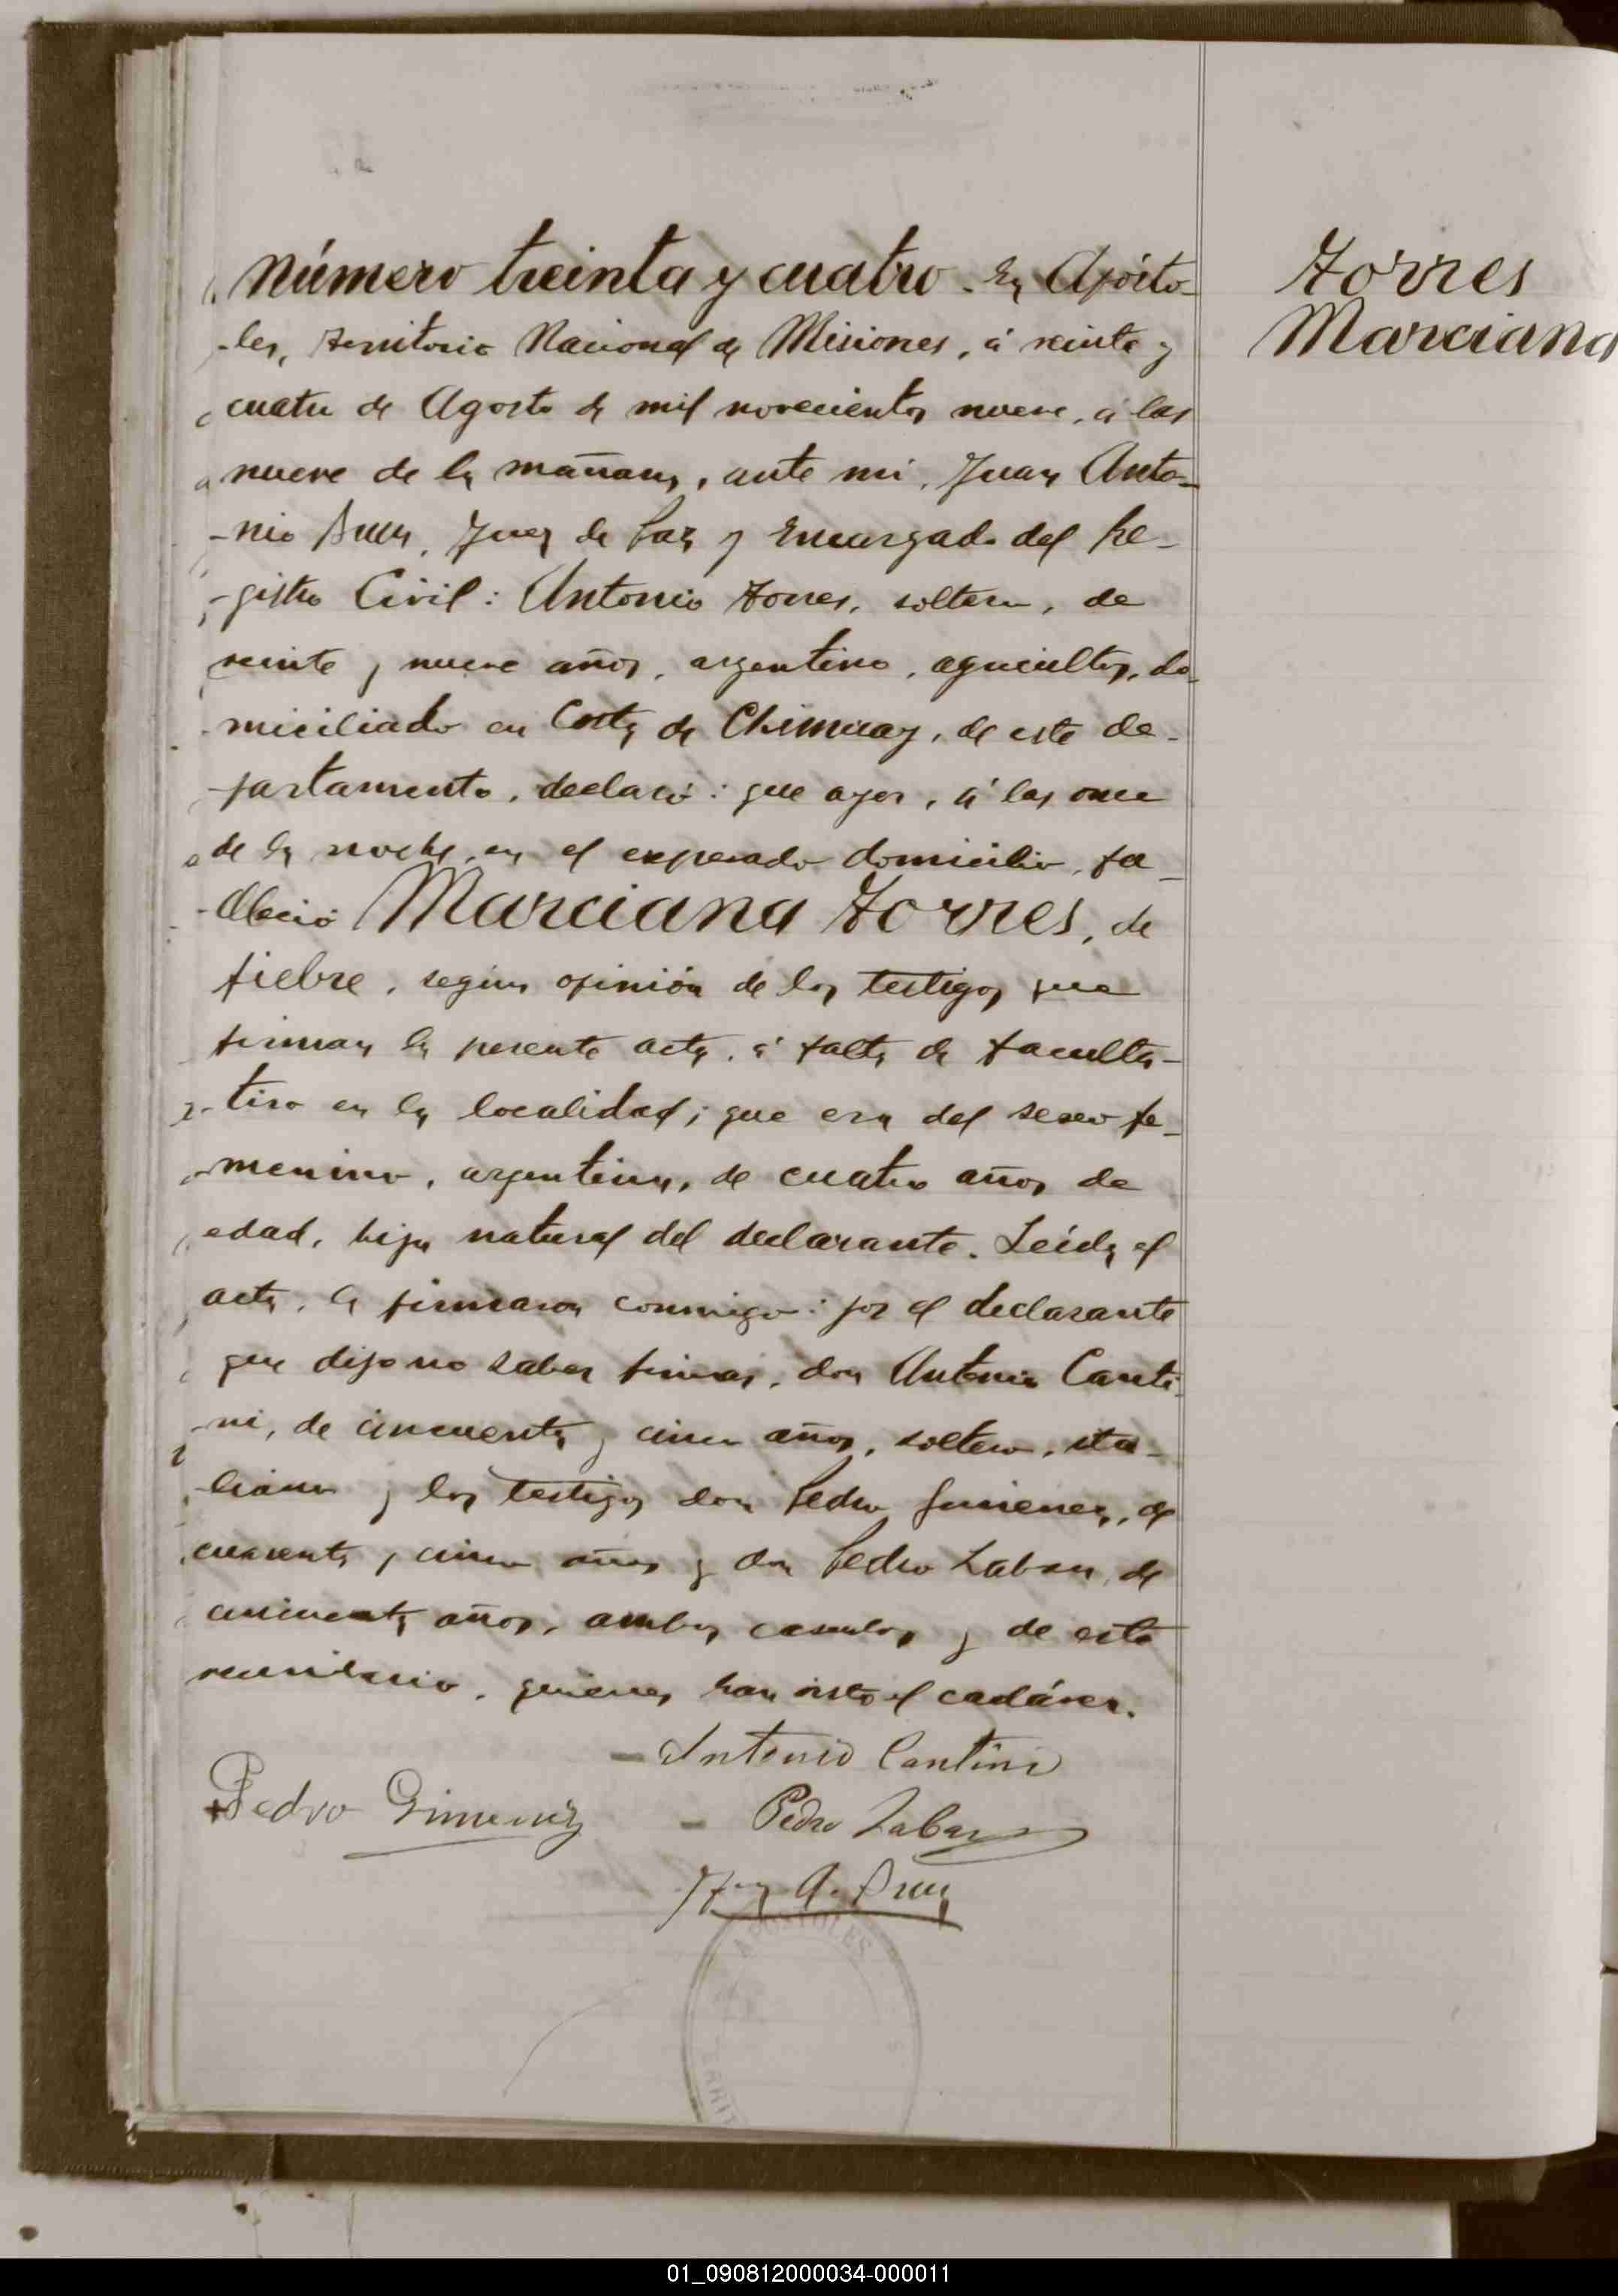 Número treinta y cuatro. En Apósto-
Torres
Marciana
-les, territorio Nacional de Misiones, á veinte y
cuatro de Agosto de mil novecientos nueve, á las
nueve de la mañana, ante mi, Juan Anto-
-nio, Juez de Paz y Encargado del Re-
-gistro Civil: Antonio Torres, soltero, de
veinte y nueve años, argentino, agricultor, do-
miciliado en Costa de Chimiray, de este de-
partamento, declaró: que ayer, á las once
de la noche, en el expresado domicilio, fa-
-lleció Marciana Torres, de
fiebre, según opinión de los testigos que
firman la presente acta, á falta de faculta-
-tivo en la localidad; que era del sexo fe-
-menino, argentina, de cuatro años de
edad, hija natural del declarante. Leída el
acta, la firmaron conmigo: por el declarante
que dijo no saber firmar, don Antonio Canti-
-ni, de cincuenta y cinco años, soltero, ita-
-liano y los testigos don Pedro Gimenez, de
cuarenta y cinco años y don Pedro Labar, de
cincuenta años, ambos casados y de este
vecindario, quienes han visto el cadáver.
Antonio Cantini
Pedro Gimenez
Pedro Labar
Juan A.
APOSTOLES
01_090812000034-000011